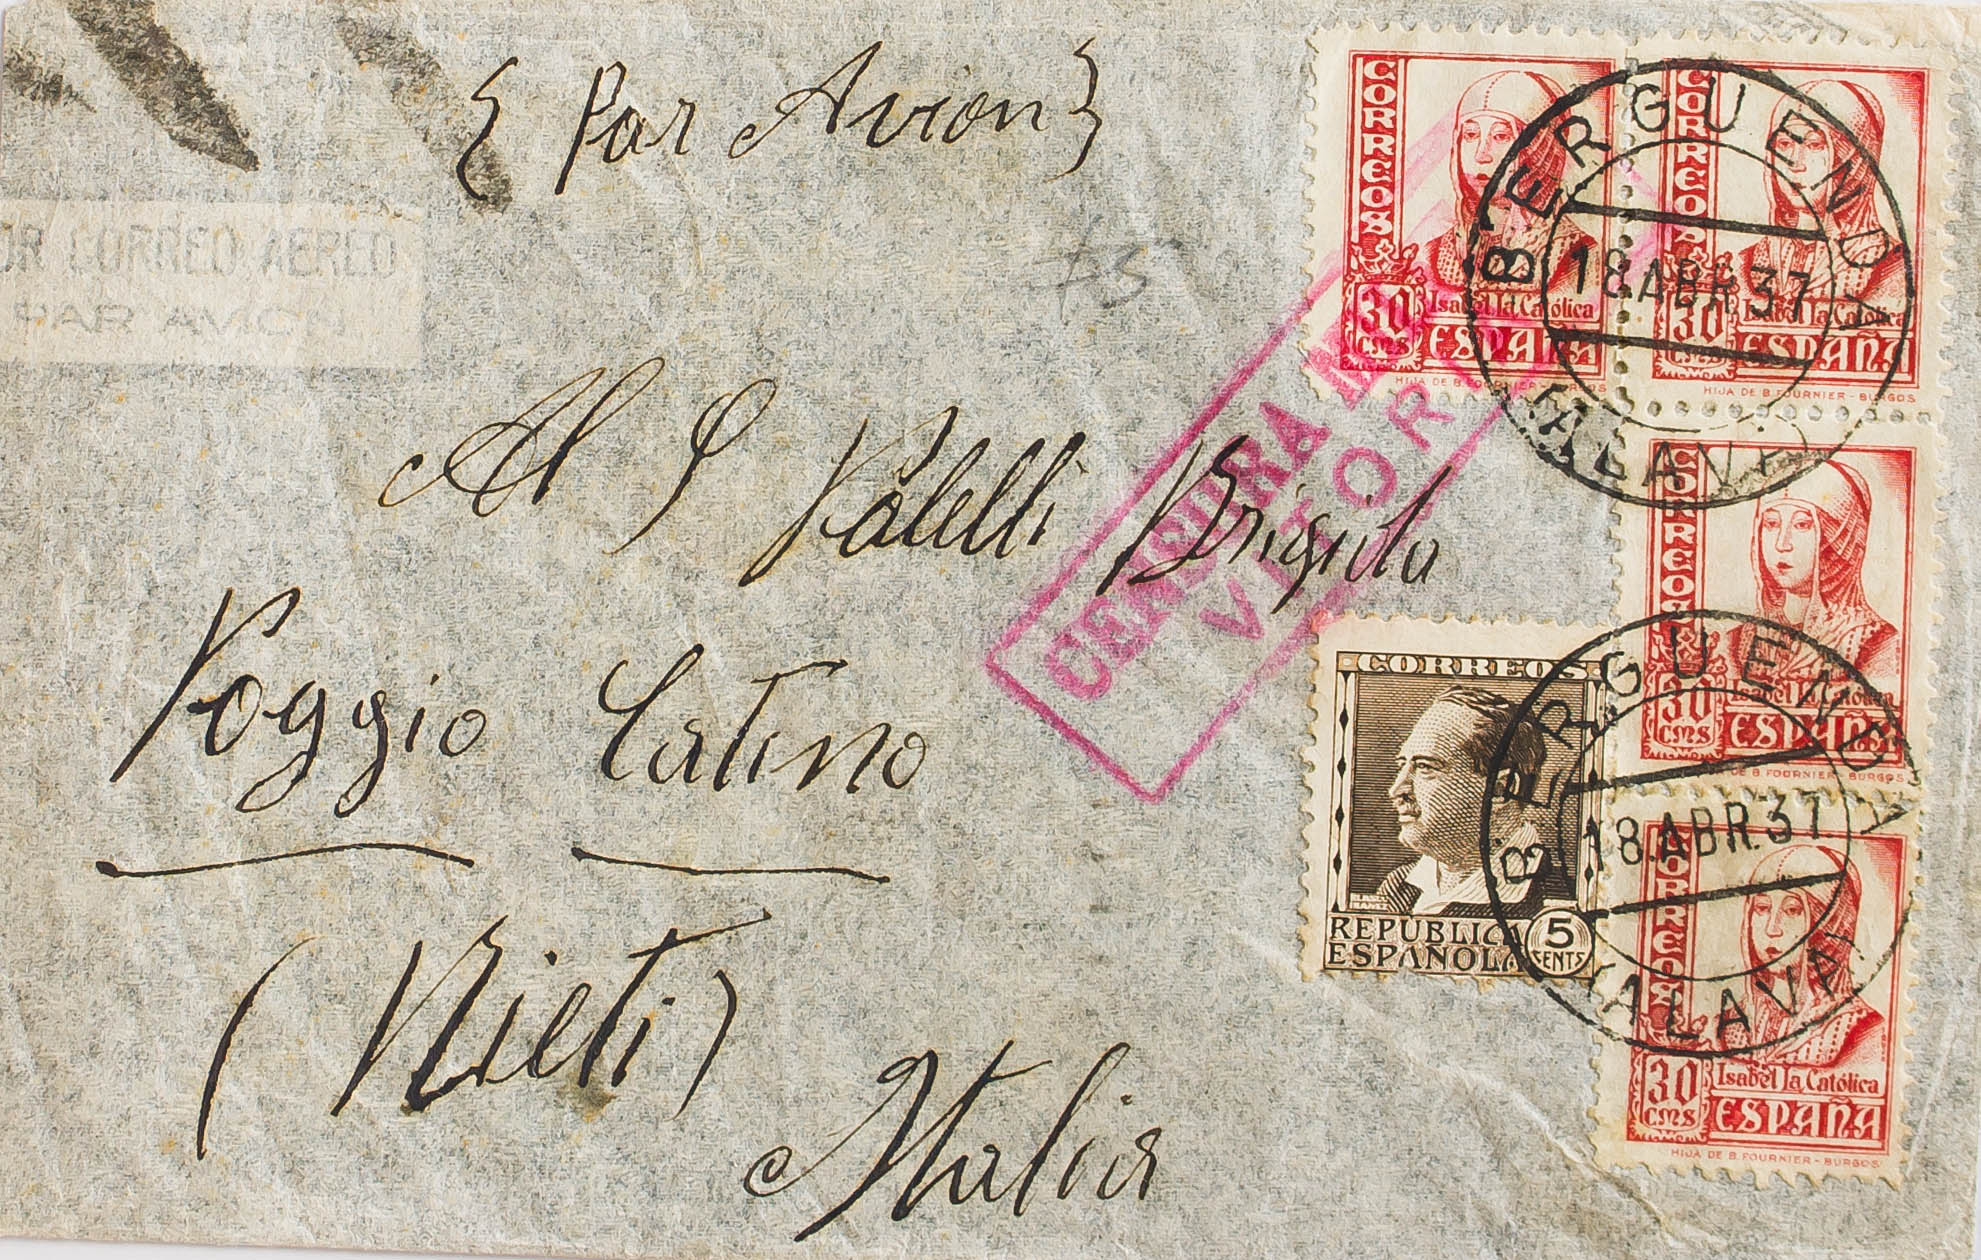 { Par Avion }
OR CORREO AEREO
PAR AVION
75
Al S Palelli Brigida
Poggio Catino
(Rieti)
Italia
CENSURA
VITOR
CORREOS
30 CMS
Isabel la Católica
ESPAÑA
HIJA DE B. FOURNIER - BURGOS
CORREOS
30 CMS
Isabel la Católica
ESPAÑA
HIJA DE B. FOURNIER - BURGOS
BERGUENDA
18 ABR 37
(ALAVA)
CORREOS
30 CMS
Isabel la Católica
ESPAÑA
DE B. FOURNIER - BURGOS
CORREOS
REPUBLICA
ESPAÑOLA
5 CENTS
BERGUENDA
18.ABR.37
(ALAVA)
CORREOS
30 CMS
Isabel la Católica
ESPAÑA
HIJA DE B. FOURNIER - BURGOS